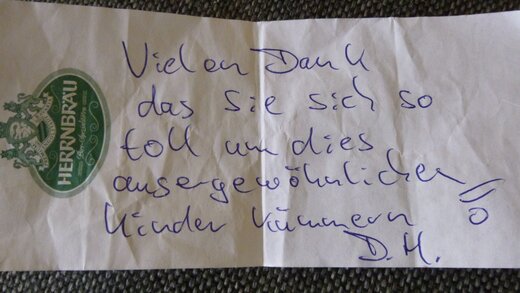 HERRNBRÄU
Vielen Dank
das Sie sich so
toll um dies
ausergewöhnlichen
Kinder kümmern
D.M.